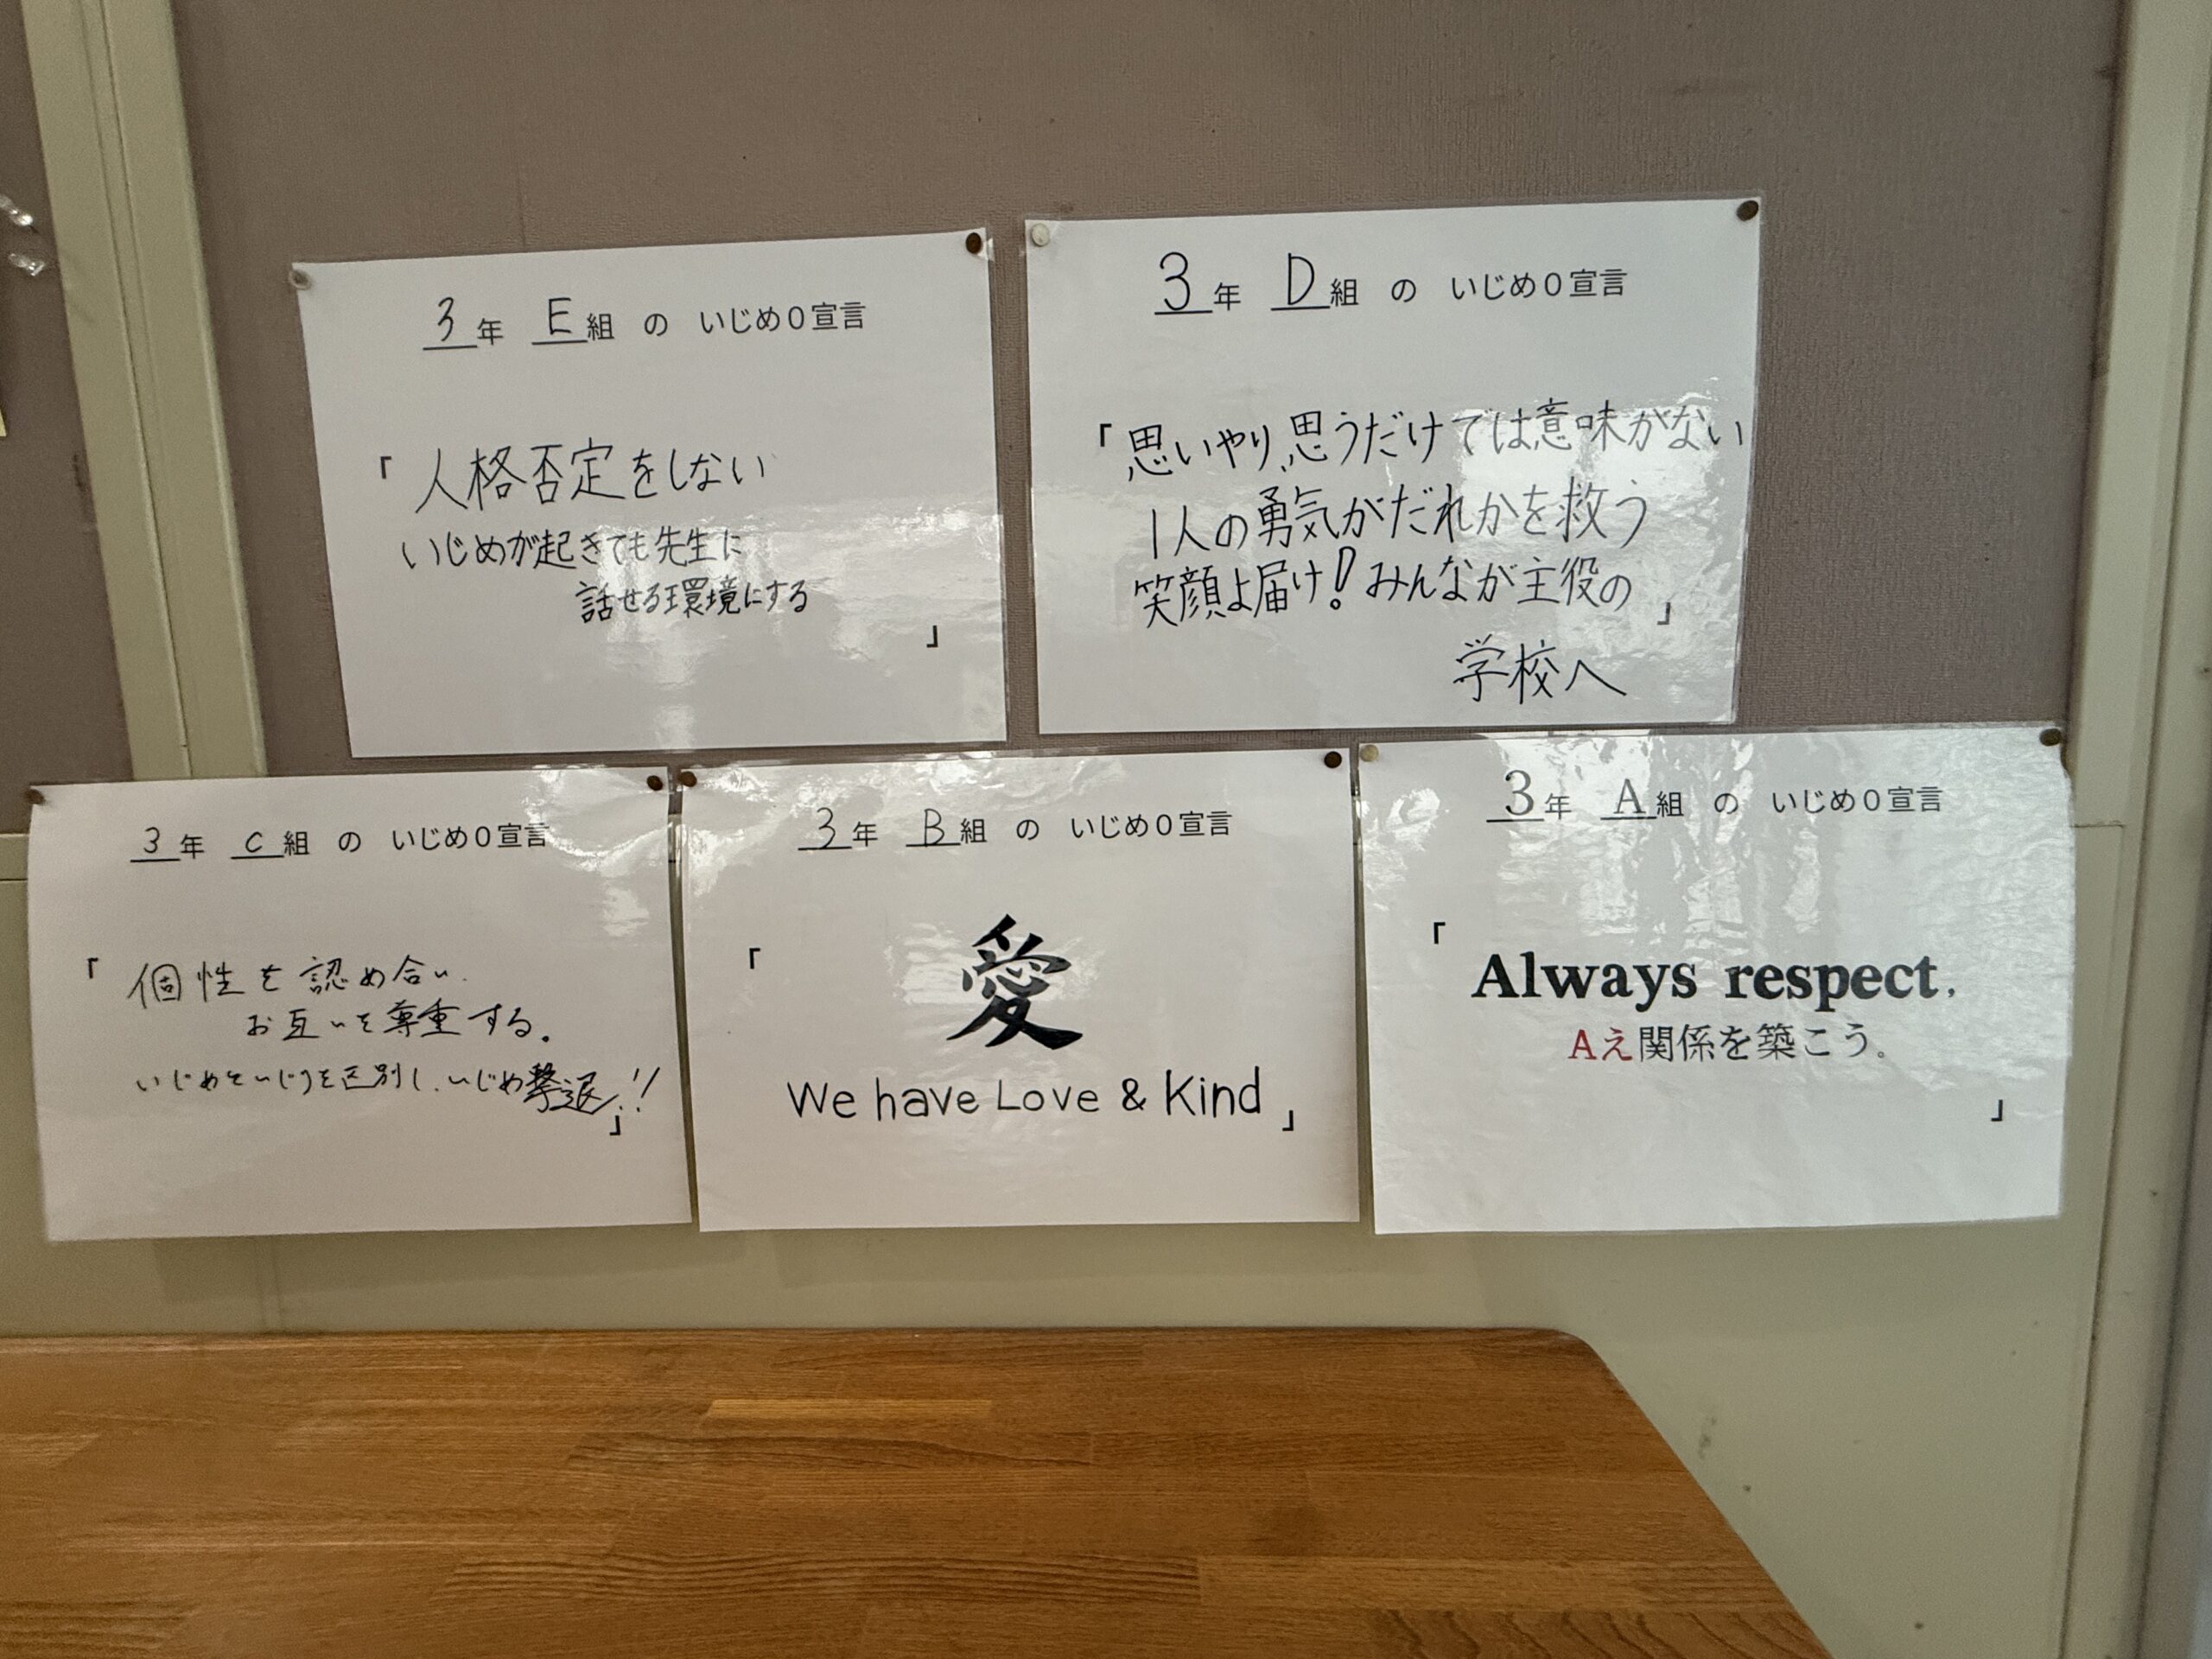 3年 E組 の いじめ0宣言
「人格否定をしない
いじめが起きても先生に
話せる環境にする
」
3年 D組 の いじめ0宣言
「思いやり、思うだけでは意味がない
1人の勇気がだれかを救う
笑顔よ届け!みんなが主役の
」
学校へ
3年 C組 の いじめ0宣言
「個性を認め合い
お互いを尊重する。
いじめといじりを区別し、いじめ撃退!!
」
3年 B組 の いじめ0宣言
「愛
We have Love & Kind」
3年 A組 の いじめ0宣言
「
Always respect.
Aえ関係を築こう。
」